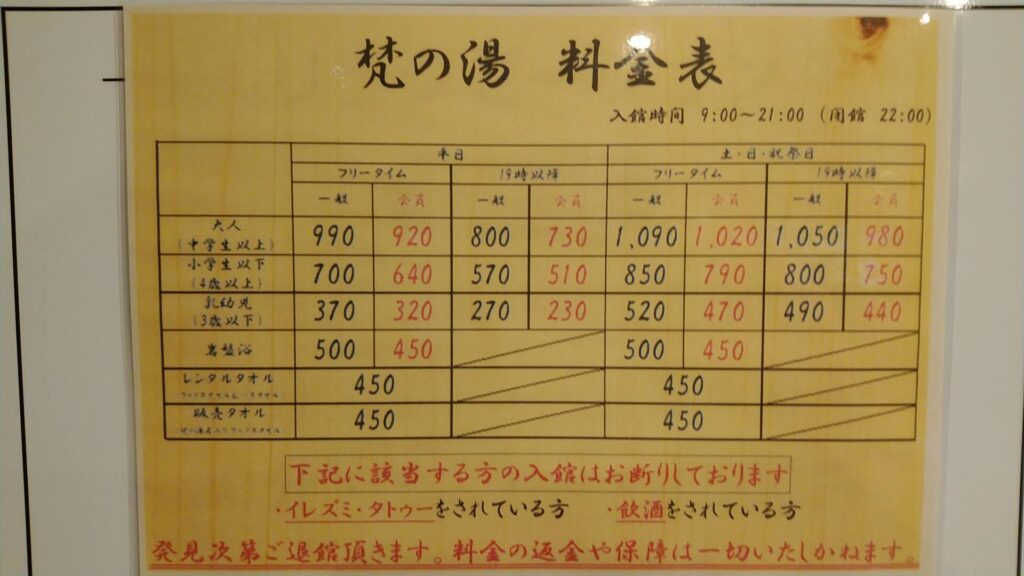 梵の湯 料金表
入館時間 9:00～21:00 (閉館 22:00)
平日 土・日・祝祭日
フリータイム 19時以降 フリータイム 19時以降
一般 会員 一般 会員 一般 会員 一般 会員
大人
(中学生以上) 990 920 800 730 1,090 1,020 1,050 980
小学生以下
(4歳以上) 700 640 570 510 850 790 800 750
乳幼児
(3歳以下) 370 320 270 230 520 470 490 440
岩盤浴 500 450 500 450
レンタルタオル 450 450
販売タオル 450 450
下記に該当する方の入館はお断りしております
・イレズミ・タトゥーをされている方 ・飲酒をされている方
発見次第ご退館頂きます。料金の返金や保障は一切いたしかねます。